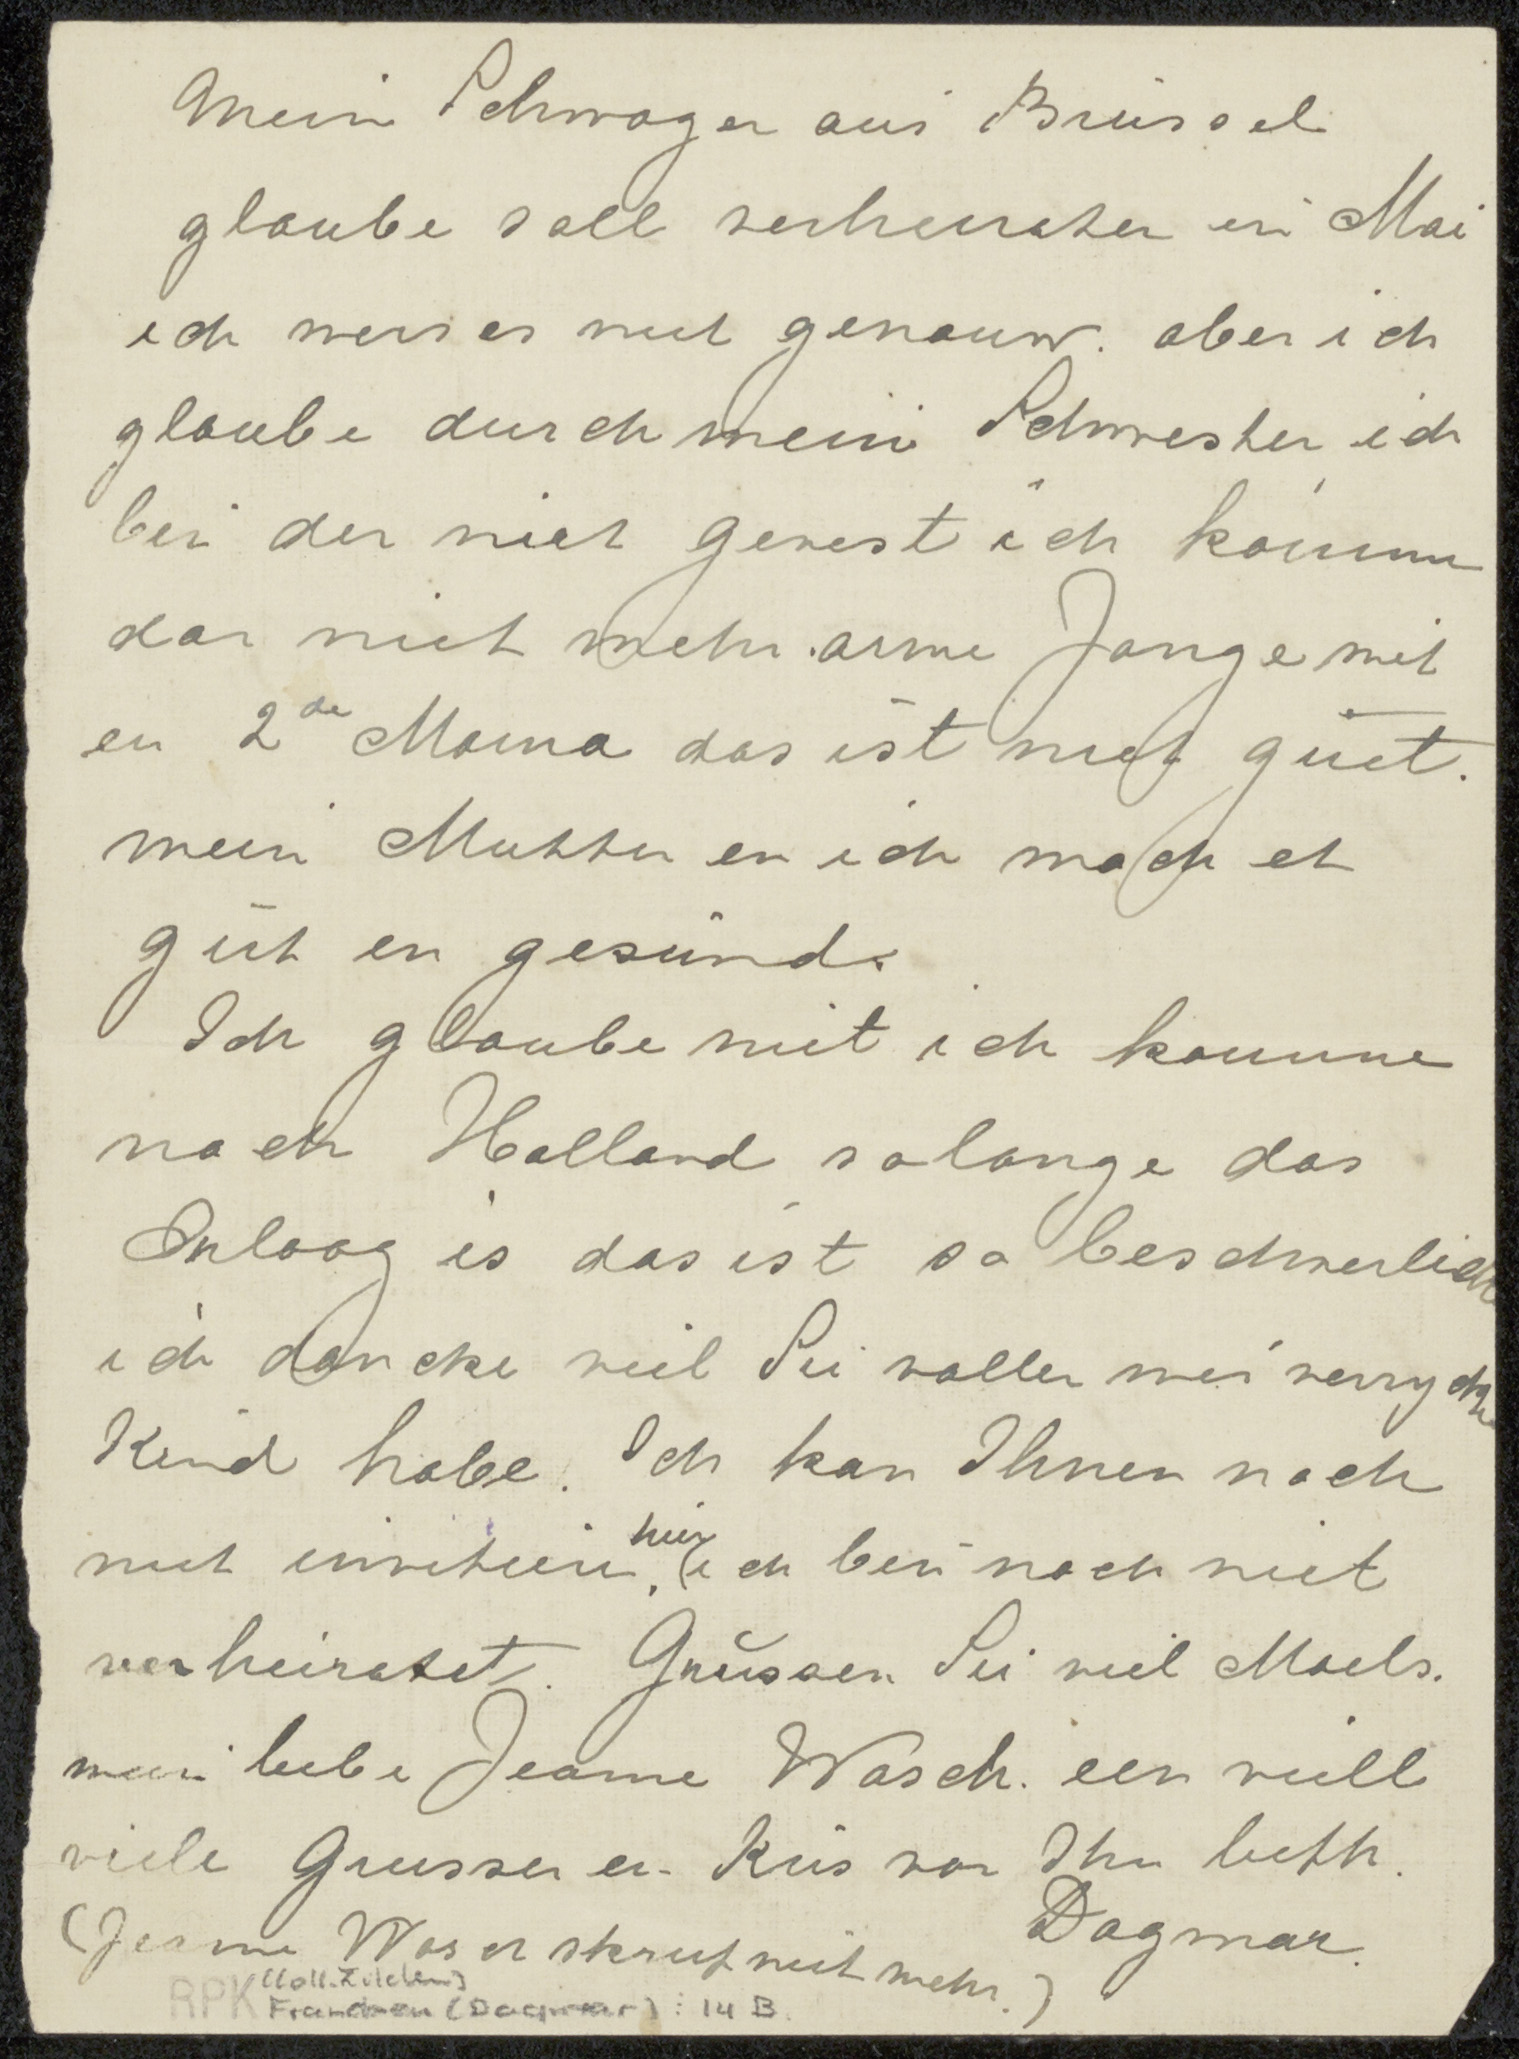 Mein Schwager aus Brüssel
glaube soll verheiraten in Mai
ich weis es niet genauw. aber ich
glaube durch mein Schwester ich
bin der niet gewest ich komme
dar niet mehr. arme Jonge mit
en 2de Mama das ist niet güt.
mein Mutter en ich mach et
güt en gesünd.
Ich glaube niet ich komme
nach Holland solange das
Orloog is das ist so beschwerlich
ich dancke viel Sie wollen mei verryckte
Kind habe. Ich kan Ihnen noch
niet invitiern hier, ich bin noch niet
verheiratet. Grüssen Sie viel Maels.
mein liebe Jeanne Wasch. een viell
viele Grusser en Küs von Ihr liebh.
Dagmar.
(Jeanne Wasch skruft niet mehr.)
RPK (Coll. Zilcken)
Francken (Dagmar) : 14 B.